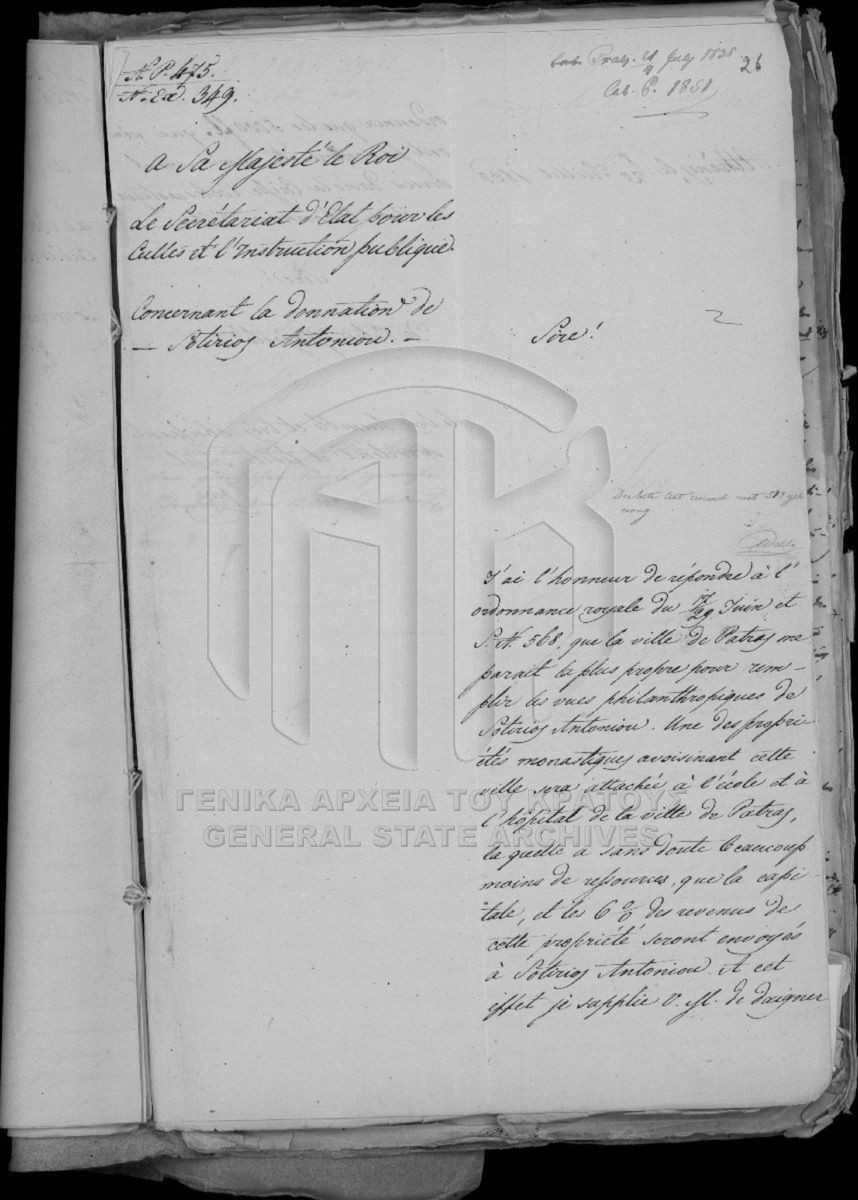 N. P. 475.
N. Ex. 349.
Praes. 21/9 July 1838
26
Cab. P. 1851
A Sa Majesté le Roi
Le Secrétariat d'Etat pour les
Cultes et l'Instruction publique.
Concernant la donnation de
— Sotirios Antoniou. —
Sire!
J'ai l'honneur de répondre à l'
ordonnance royale du 17/29 Juin et
S. N. 568, que la ville de Patras me
parait la plus propre pour rem-
plir les vues philanthropiques de
Sotirios Antoniou. Une des propri-
étés monastiques avoisinant cette
ville sera attachée à l'école et à
l'hôpital de la ville de Patras,
la quelle a sans doute beaucoup
moins de ressources, que la capi-
tale, et les 6 % des revenus de
cette propriété seront envoyés
à Sotirios Antoniou. A cet
effet je supplie V. M. de daigner
ΓΕΝΙΚΑ ΑΡΧΕΙΑ ΤΟΥ ΚΡΑΤΟΥΣ
GENERAL STATE ARCHIVES